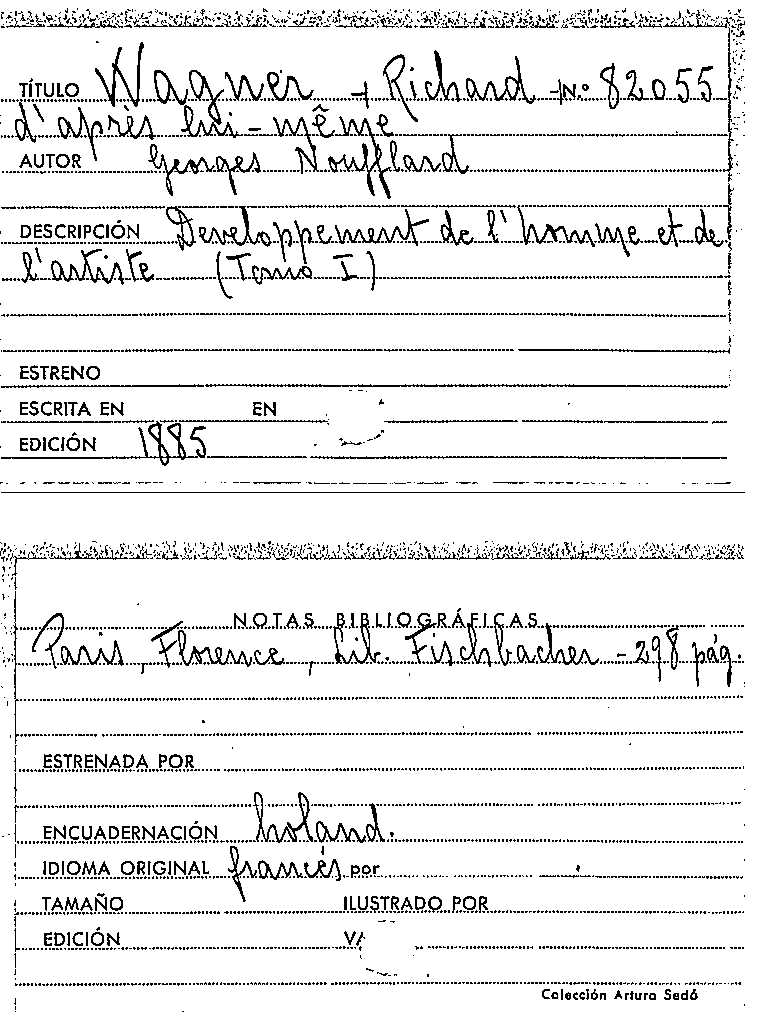 TÍTULO Wagner + Richard + N.º 82055
d'après lui-même
AUTOR Georges Noufflard
DESCRIPCIÓN Developpement de l'homme et de
l'artiste (Tomo I)
ESTRENO
ESCRITA EN EN
EDICIÓN 1885
NOTAS BIBLIOGRÁFICAS
Paris, Florence, Lib. Fischbacher - 298 pág.
ESTRENADA POR
ENCUADERNACIÓN holand.
IDIOMA ORIGINAL francés por
TAMAÑO ILUSTRADO POR
EDICIÓN
Colección Arturo Sedó